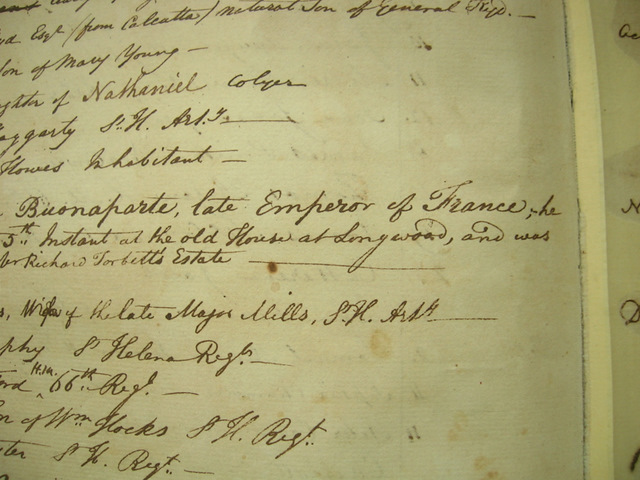 Esqr (from Calcutta) natural Son of General
Son of Mary Young —
ghter of Nathaniel Colyer
aggarty St. H. Arty. —
Howes Inhabitant —
Buonaparte, late Emperor of France, he
5th Instant at the old House at Longwood, and was
Richard Torbett's Estate —
s, Wife of the late Major Mills, St. H. Arty —
phy St Helena Regt. —
ord H.M. 66th Regt. —
n of Wm Hocks St H. Regt.
ster St H. Regt. —